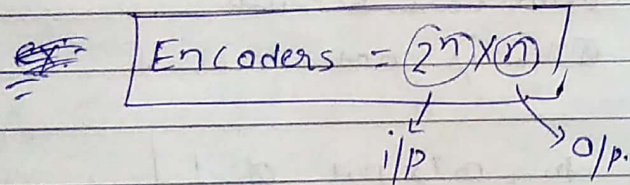 Encoders = 2ⁿ × n
i/p
o/p.